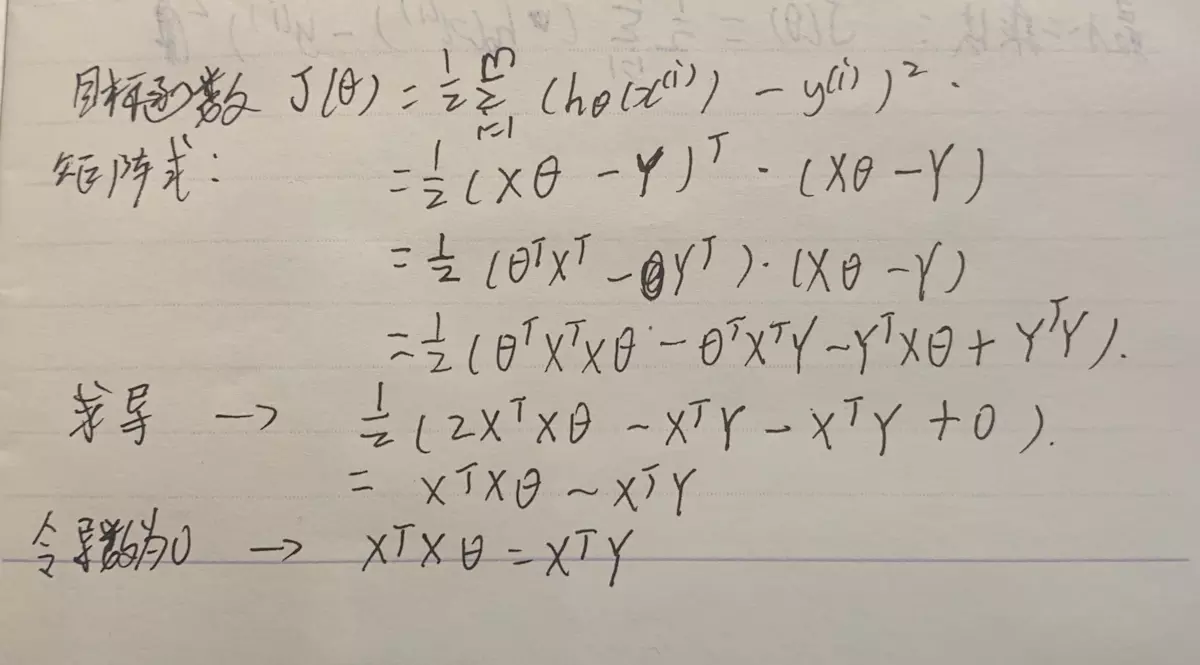 目标函数 J(θ) = 1/2 Σ_{i=1}^{m} (hθ(x^(i)) - y^(i))².
矩阵式: = 1/2 (Xθ - Y)^T · (Xθ - Y)
= 1/2 (θ^T X^T - Y^T) · (Xθ - Y)
= 1/2 (θ^T X^T Xθ - θ^T X^T Y - Y^T Xθ + Y^T Y).
求导 → 1/2 (2X^T Xθ - X^T Y - X^T Y + 0).
= X^T Xθ - X^T Y
令导数为0 → X^T Xθ = X^T Y